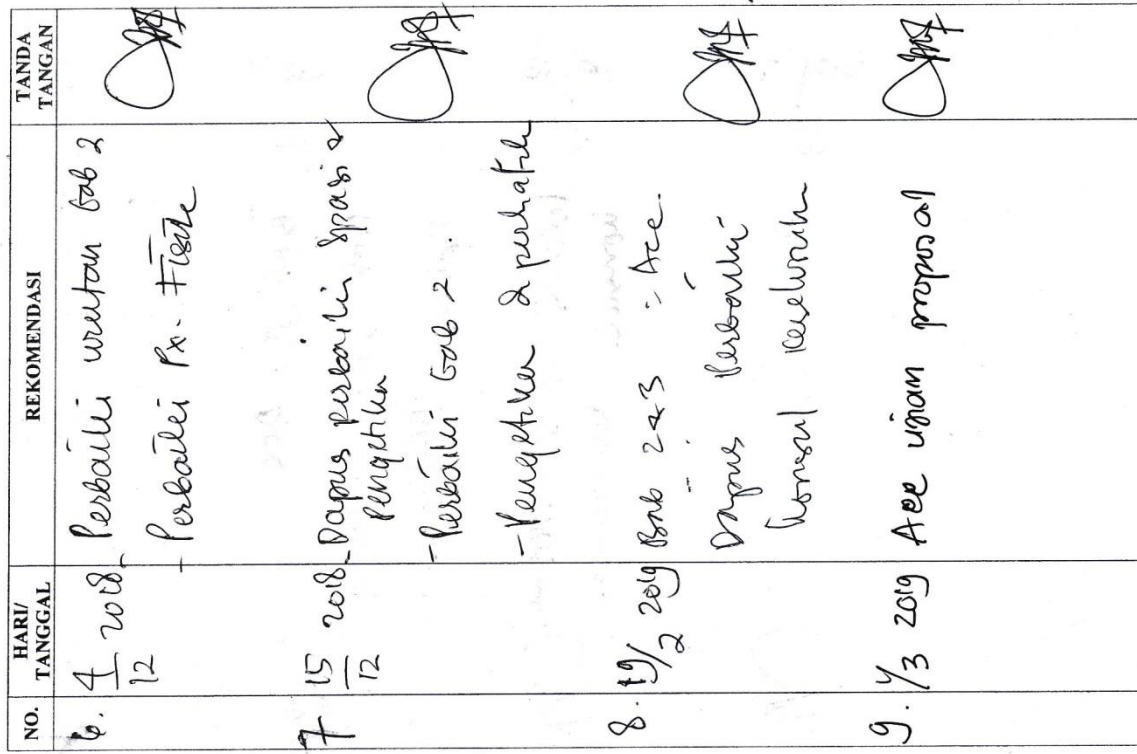 NO. HARI/ TANGGAL REKOMENDASI TANDA TANGAN
6. 4/12 2018 - Perbaiki urutan bab 2
- Perbaiki Px. Fisik
7 15/12 2018 - Dapus perbaiki spasi &
Pengetikan
- Perbaiki bab 2.
- Pengetikan di perhatikan
8. 19/2 2019 Bab 2 & 3 = Acc.
Dapus Perbaiki
konsul keseluruhan
9. 1/3 2019 Acc ujian proposal